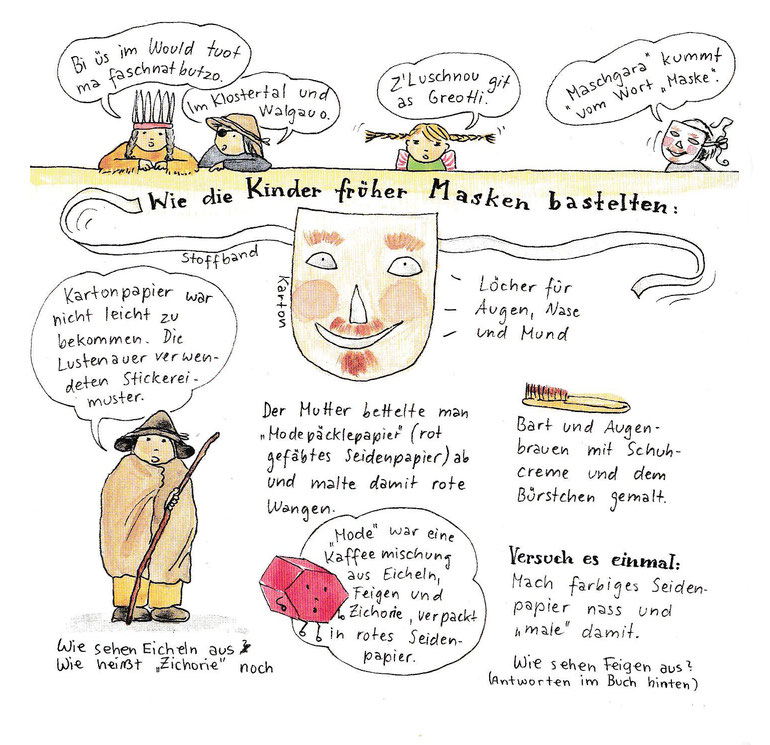 Bi üs im Would tuot
ma faschnatbutzo.
Im Klostertal und
Walgauo.
Z'Luschnou git
as Greotli.
„Maschgara" kummt
vom Wort „Maske".
Wie die Kinder früher Masken bastelten:
Stoffband
Karton
Löcher für
Augen, Nase
und Mund
Kartonpapier war
nicht leicht zu
bekommen. Die
Lustenauer verwen-
deten Stickerei-
muster.
Der Mutter bettelte man
„Modepäcklepapier" (rot
gefäbtes Seidenpapier) ab
und malte damit rote
Wangen.
Bart und Augen-
brauen mit Schuh-
creme und dem
Bürstchen gemalt.
„Mode" war eine
Kaffeemischung
aus Eicheln,
Feigen und
Zichorie, verpackt
in rotes Seiden-
papier.
Versuch es einmal:
Mach farbiges Seiden-
papier nass und
„male" damit.
Wie sehen Eicheln aus?
Wie heißt „Zichorie" noch
Wie sehen Feigen aus?
(Antworten im Buch hinten)